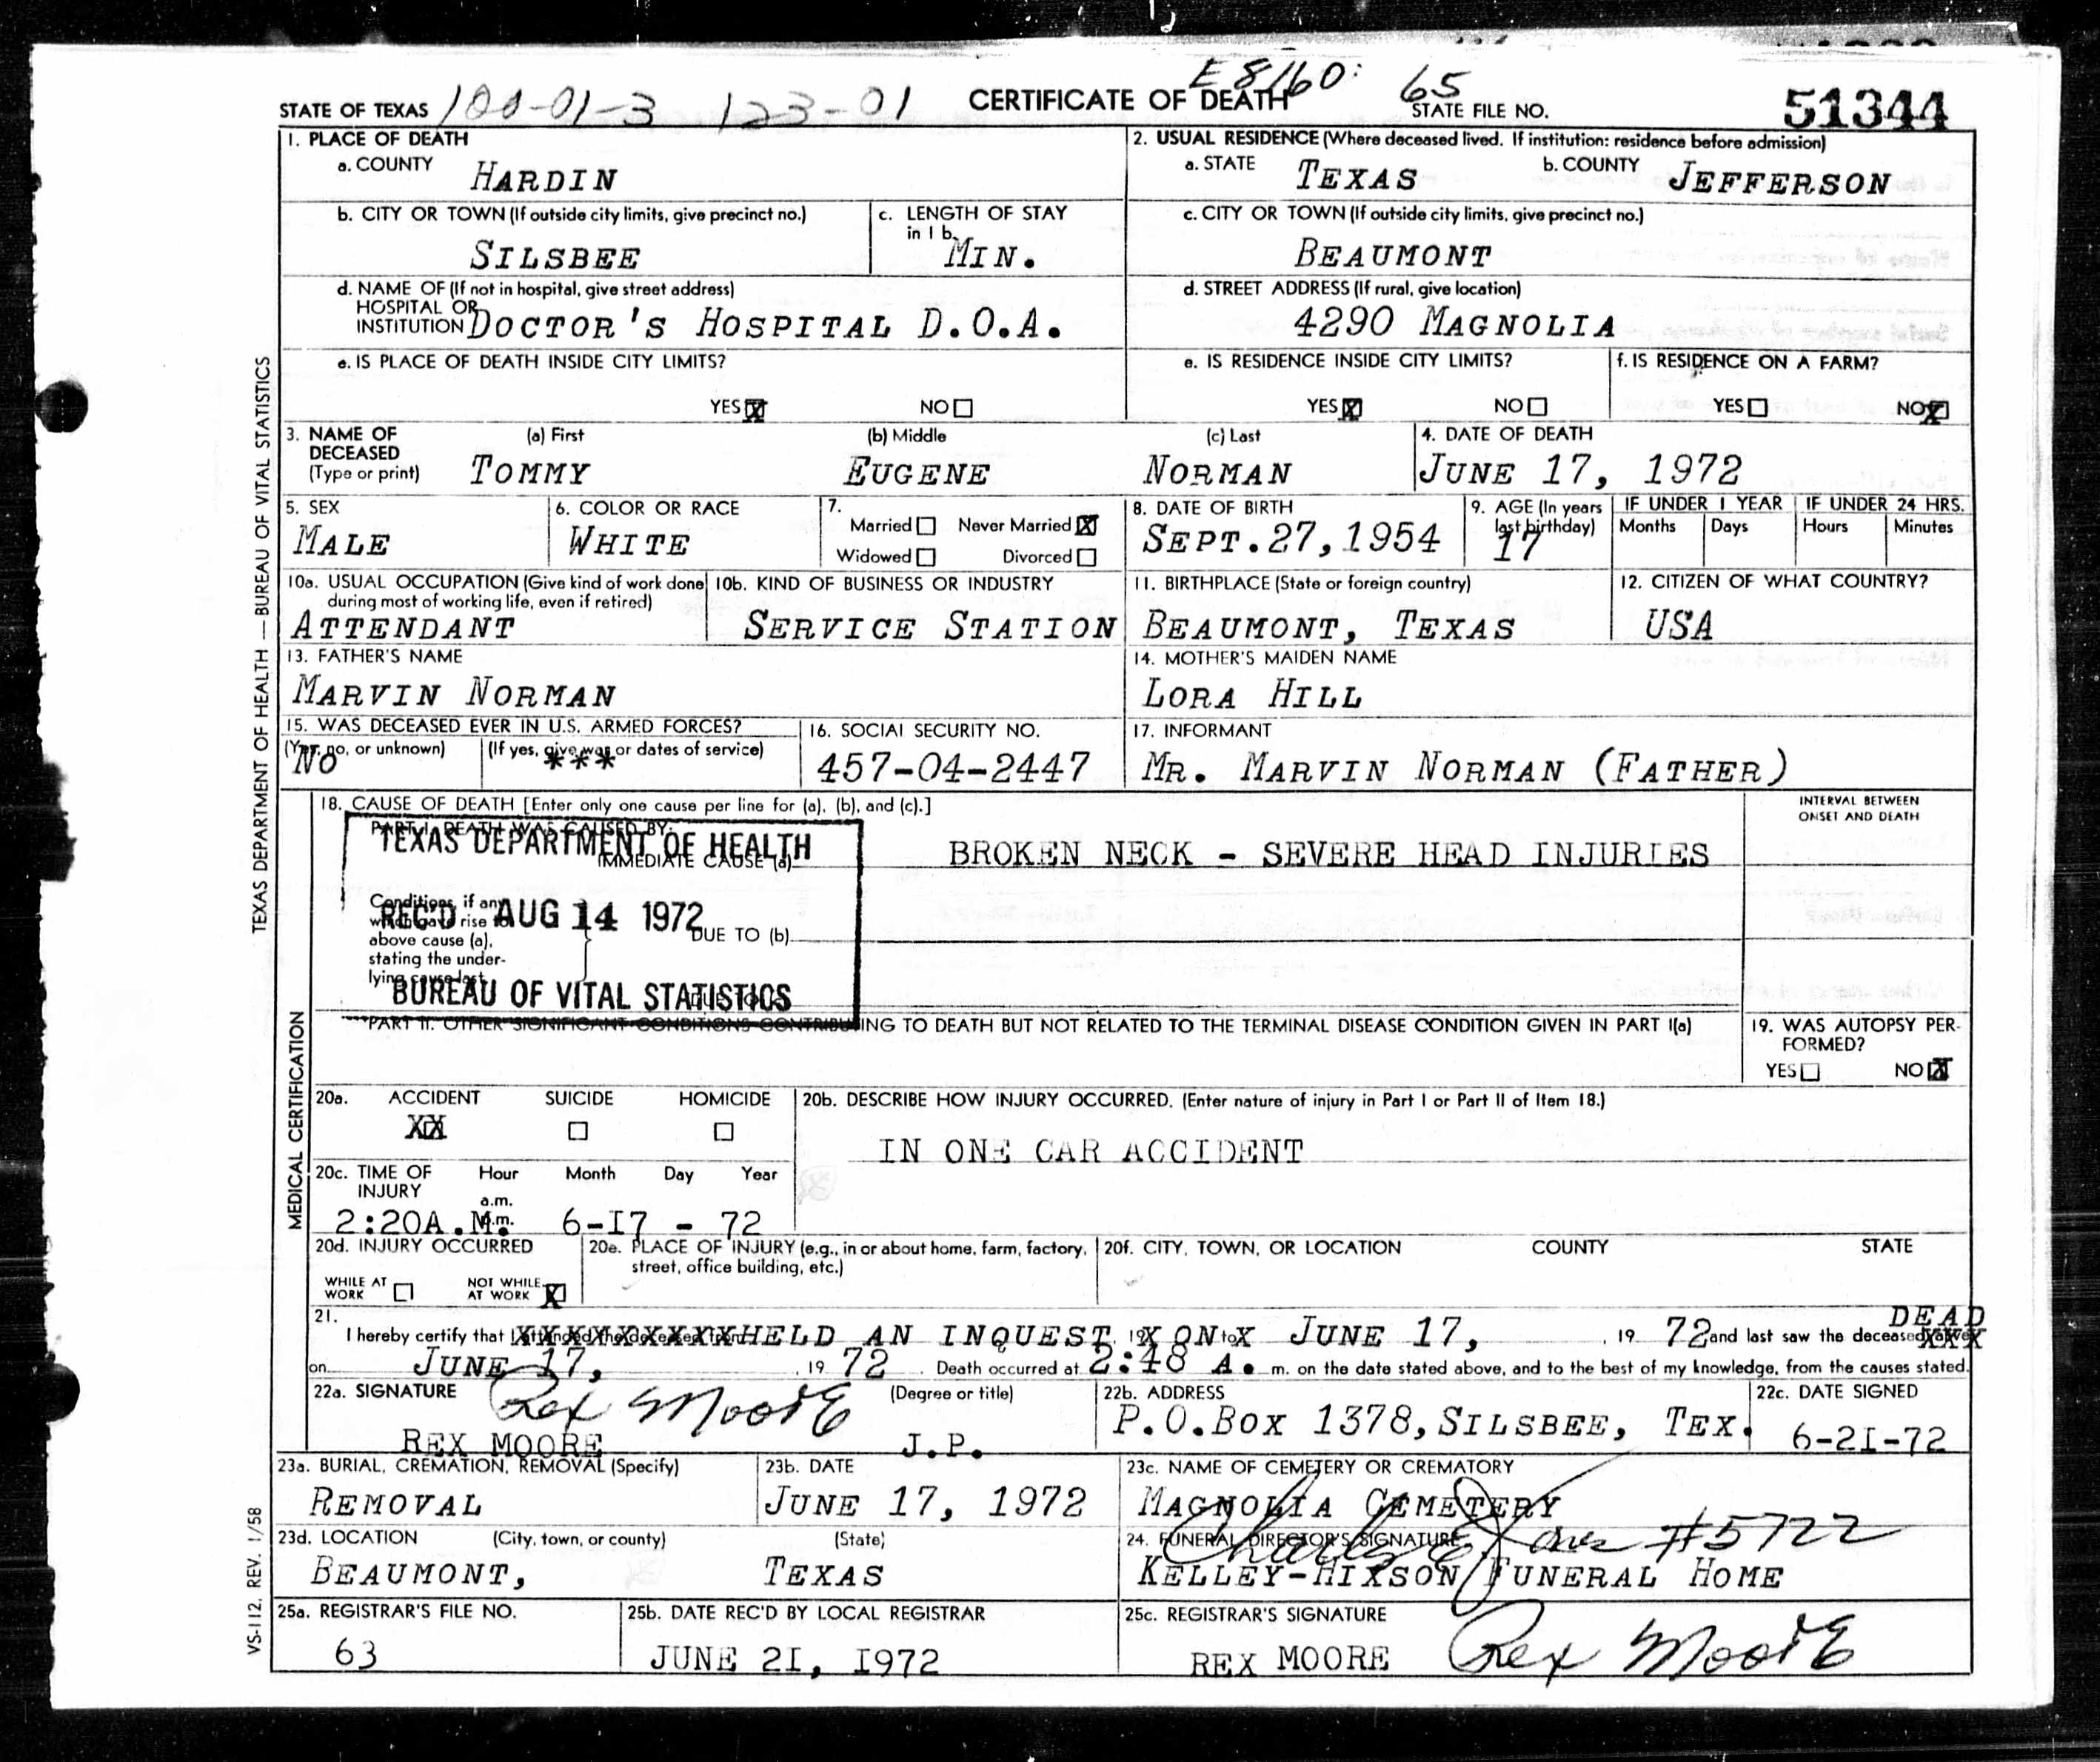 E 8160: 65
STATE OF TEXAS 100-01-3 123-01 CERTIFICATE OF DEATH STATE FILE NO. 51344
1. PLACE OF DEATH
a. COUNTY HARDIN
2. USUAL RESIDENCE (Where deceased lived. If institution: residence before admission)
a. STATE TEXAS b. COUNTY JEFFERSON
b. CITY OR TOWN (If outside city limits, give precinct no.)
SILSBEE
c. LENGTH OF STAY in 1 b.
MIN.
c. CITY OR TOWN (If outside city limits, give precinct no.)
BEAUMONT
d. NAME OF (If not in hospital, give street address)
HOSPITAL OR
INSTITUTION DOCTOR'S HOSPITAL D.O.A.
d. STREET ADDRESS (If rural, give location)
4290 MAGNOLIA
e. IS PLACE OF DEATH INSIDE CITY LIMITS?
YES X NO
e. IS RESIDENCE INSIDE CITY LIMITS?
YES X NO
f. IS RESIDENCE ON A FARM?
YES NO X
3. NAME OF DECEASED (Type or print)
(a) First (b) Middle (c) Last
TOMMY EUGENE NORMAN
4. DATE OF DEATH
JUNE 17, 1972
5. SEX
MALE
6. COLOR OR RACE
WHITE
7.
Married Never Married X
Widowed Divorced
8. DATE OF BIRTH
SEPT.27,1954
9. AGE (In years last birthday)
17
IF UNDER 1 YEAR IF UNDER 24 HRS.
Months Days Hours Minutes
10a. USUAL OCCUPATION (Give kind of work done during most of working life, even if retired)
ATTENDANT
10b. KIND OF BUSINESS OR INDUSTRY
SERVICE STATION
11. BIRTHPLACE (State or foreign country)
BEAUMONT, TEXAS
12. CITIZEN OF WHAT COUNTRY?
USA
13. FATHER'S NAME
MARVIN NORMAN
14. MOTHER'S MAIDEN NAME
LORA HILL
15. WAS DECEASED EVER IN U.S. ARMED FORCES?
(Yes, no, or unknown) (If yes, give war or dates of service)
NO ***
16. SOCIAL SECURITY NO.
457-04-2447
17. INFORMANT
MR. MARVIN NORMAN (FATHER)
MEDICAL CERTIFICATION
18. CAUSE OF DEATH [Enter only one cause per line for (a), (b), and (c).]
INTERVAL BETWEEN ONSET AND DEATH
PART I. DEATH WAS CAUSED BY:
IMMEDIATE CAUSE (a) BROKEN NECK - SEVERE HEAD INJURIES
TEXAS DEPARTMENT OF HEALTH
REC'D AUG 14 1972
BUREAU OF VITAL STATISTICS
Conditions, if any, which gave rise to above cause (a), stating the underlying cause last.
DUE TO (b)
DUE TO (c)
PART II. OTHER SIGNIFICANT CONDITIONS CONTRIBUTING TO DEATH BUT NOT RELATED TO THE TERMINAL DISEASE CONDITION GIVEN IN PART I(a)
19. WAS AUTOPSY PERFORMED?
YES NO X
20a. ACCIDENT SUICIDE HOMICIDE
XX
20b. DESCRIBE HOW INJURY OCCURRED. (Enter nature of injury in Part I or Part II of Item 18.)
IN ONE CAR ACCIDENT
20c. TIME OF INJURY Hour Month Day Year
a.m.
p.m.
2:20A.M. 6-I7 - 72
20d. INJURY OCCURRED
WHILE AT WORK NOT WHILE AT WORK X
20e. PLACE OF INJURY (e.g., in or about home, farm, factory, street, office building, etc.)
20f. CITY, TOWN, OR LOCATION COUNTY STATE
21.
DEAD
I hereby certify that I attended the deceased from HELD AN INQUEST, 19X ON to X JUNE 17, , 19 72 and last saw the deceased alive
on JUNE 17, , 19 72 . Death occurred at 2:48 A. m. on the date stated above, and to the best of my knowledge, from the causes stated.
22a. SIGNATURE (Degree or title)
Rex Moore
REX MOORE J.P.
22b. ADDRESS
P.O.BOX 1378,SILSBEE, TEX.
22c. DATE SIGNED
6-2I-72
23a. BURIAL, CREMATION, REMOVAL (Specify)
REMOVAL
23b. DATE
JUNE 17, 1972
23c. NAME OF CEMETERY OR CREMATORY
MAGNOLIA CEMETERY
23d. LOCATION (City, town, or county) (State)
BEAUMONT, TEXAS
24. FUNERAL DIRECTOR'S SIGNATURE
Charles E Jones #5722
KELLEY-HIXSON FUNERAL HOME
25a. REGISTRAR'S FILE NO.
63
25b. DATE REC'D BY LOCAL REGISTRAR
JUNE 2I, I972
25c. REGISTRAR'S SIGNATURE
REX MOORE Rex Moore
TEXAS DEPARTMENT OF HEALTH — BUREAU OF VITAL STATISTICS
VS-112, REV. 1/58